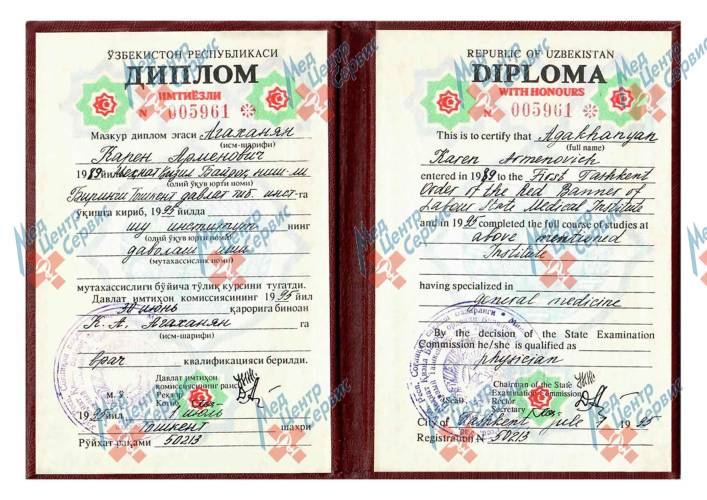 ЎЗБЕКИСТОН РЕСПУБЛИКАСИ
ДИПЛОМ
ИМТИЁЗЛИ
N 005961
Мазкур диплом эгаси Агаханян
(исм-шарифи)
Карен Арменович
1989 йил Меҳнат Қизил Байроқ ниш-ли
(олий ўқув юрти номи)
Биринчи Тошкент давлат тиб. инст-га
ўқишга кириб, 1995 йилда
шу институт нинг
(олий ўқув юрти номи)
даволаш иши
(мутахассислик номи)
мутахассислиги бўйича тўлиқ курсини тугатди.
Давлат имтиҳон комиссиясининг 1995 йил
30 июнь қарорига биноан
К. А. Агаханян га
(исм-шарифи)
врач квалификацияси берилди.
Давлат имтиҳон
комиссиясининг раиси
М. Ў. Ректор
Котиб
1995 йил 1 июль
Тошкент шаҳри
Рўйхат рақами 50213
REPUBLIC OF UZBEKISTAN
DIPLOMA
WITH HONOURS
N 005961
This is to certify that Agakhanyan
(full name)
Karen Armenovich
entered in 1989 to the First Tashkent
Order of the Red Banner of
Labour State Medical Institute
and in 1995 completed the full course of studies at
above mentioned
Institute
having specialized in
general medicine
By the decision of the State Examination
Commission he/she is qualified as
physician
Chairman of the State
Examination Commission
(Seal) Rector
Secretary
City of Tashkent july 1 1995
Registration N 50213
Мед Центр Сервис